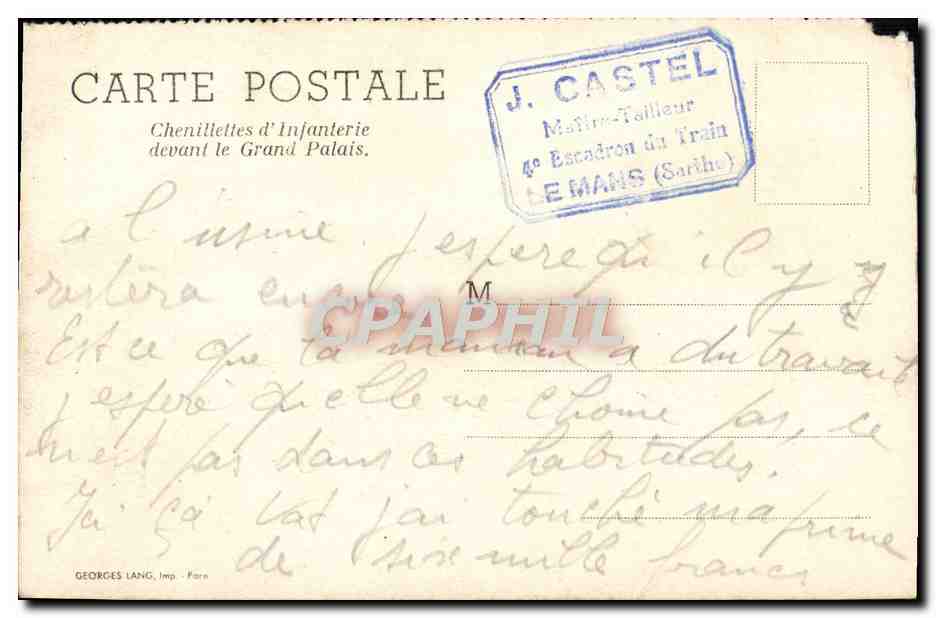 CARTE POSTALE
Chenillettes d'Infanterie
devant le Grand Palais.
J. CASTEL
Maître-Tailleur
4e Escadron du Train
LE MANS (Sarthe)
a l'usine. j espere qu il y
restera encore
M
CPAPHIL
Est ce que ta maman a du travail
j espère qu elle ne chome pas, ce
n est pas dans ces habitudes.
Ici ça vas j ai touché ma prime
de six mille francs
GEORGES LANG, Imp. - Paris